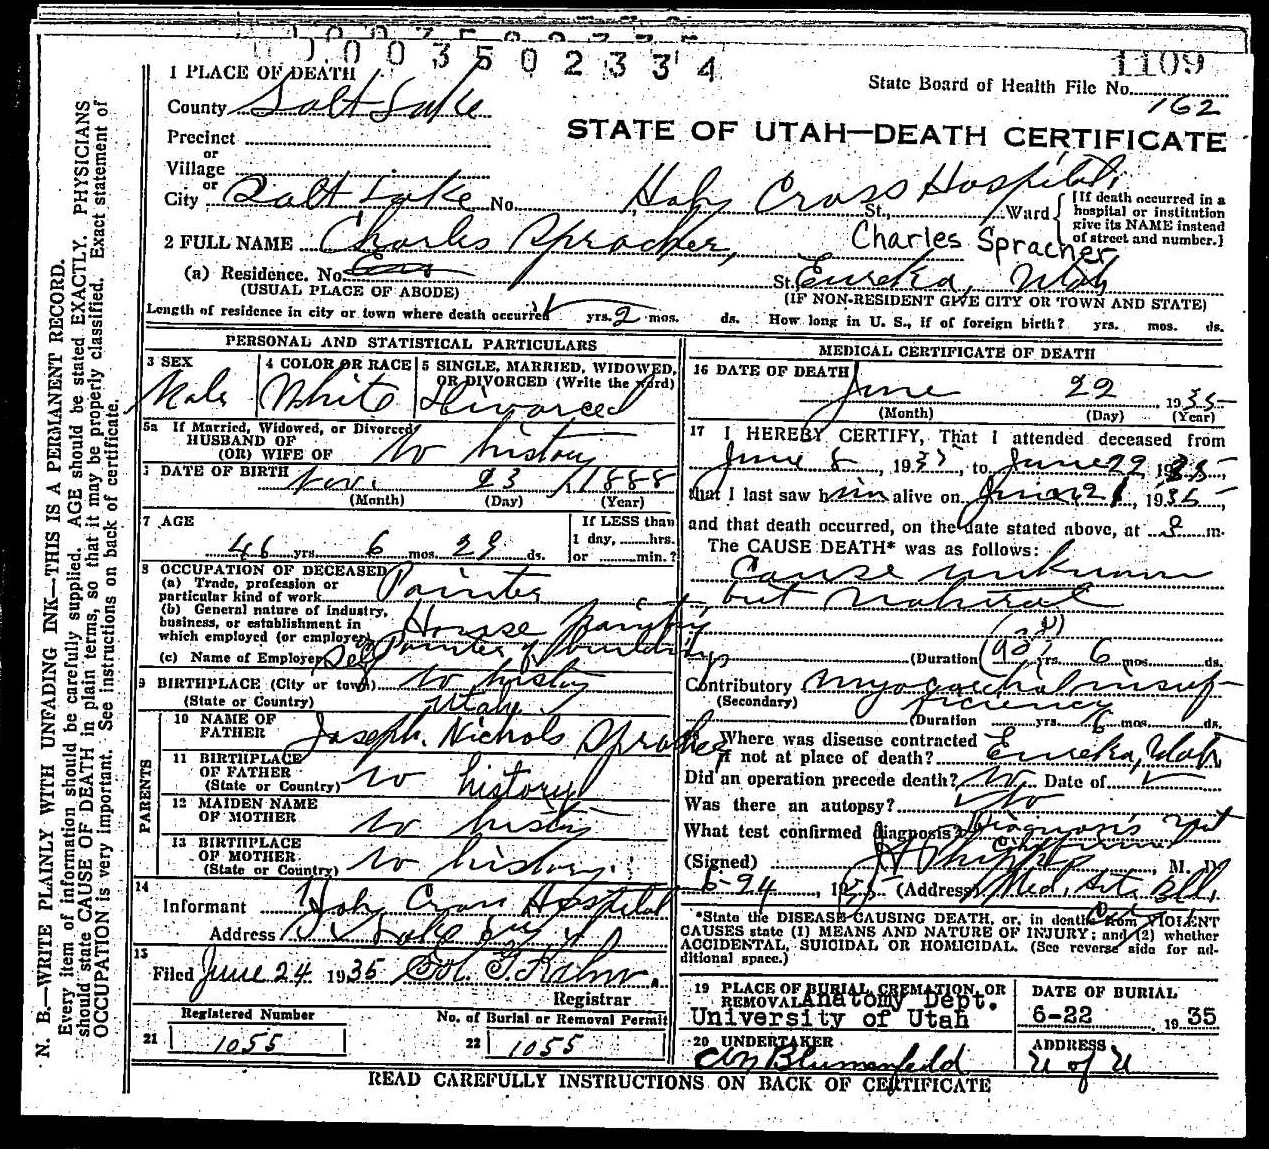 0003502334
1109
State Board of Health File No. 162
1 PLACE OF DEATH
County Salt Lake
STATE OF UTAH—DEATH CERTIFICATE
Precinct
or
Village
or
City Salt Lake No. Holy Cross Hospital St., Ward
[If death occurred in a hospital or institution give its NAME instead of street and number.]
2 FULL NAME Charles Spracher, Charles Spracher
(a) Residence. No. St. Eureka, Utah
(USUAL PLACE OF ABODE) (IF NON-RESIDENT GIVE CITY OR TOWN AND STATE)
Length of residence in city or town where death occurred yrs. 2 mos. ds. How long in U. S., if of foreign birth? yrs. mos. ds.
PERSONAL AND STATISTICAL PARTICULARS
3 SEX Male
4 COLOR OR RACE White
5 SINGLE, MARRIED, WIDOWED, OR DIVORCED (Write the word) Divorced
5a If Married, Widowed, or Divorced
HUSBAND OF
(OR) WIFE OF No history
DATE OF BIRTH Nov. 23, 1888
(Month) (Day) (Year)
7 AGE 46 yrs. 6 mos. 29 ds.
If LESS than 1 day, hrs. or min.?
8 OCCUPATION OF DECEASED
(a) Trade, profession or particular kind of work Painter
(b) General nature of industry, business, or establishment in which employed (or employer) House painting
(c) Name of Employer Self Painter of buildings
9 BIRTHPLACE (City or town) No history
(State or Country) Utah
PARENTS
10 NAME OF FATHER Joseph Nichols Spracher
11 BIRTHPLACE OF FATHER (State or Country) No history
12 MAIDEN NAME OF MOTHER No history
13 BIRTHPLACE OF MOTHER (State or Country) No history.
14
Informant Holy Cross Hospital
Address S. Lake City U.
15
Filed June 24 1935
Registrar
Registered Number No. of Burial or Removal Permit
21 1055 22 1055
MEDICAL CERTIFICATE OF DEATH
16 DATE OF DEATH June 22 1935
(Month) (Day) (Year)
17 I HEREBY CERTIFY, That I attended deceased from
June 8, 1935, to June 22 1935,
that I last saw him alive on June 21, 1935,
and that death occurred, on the date stated above, at m.
The CAUSE DEATH* was as follows:
Cause unknown
but natural
(Duration yrs. 6 mos. ds.
Contributory myocardial insufficiency
(Secondary)
(Duration yrs. 6 mos. ds.
Where was disease contracted
if not at place of death? Eureka, Utah
Did an operation precede death? No Date of
Was there an autopsy? No
What test confirmed diagnosis? Diagnosis not confirmed
(Signed) , M. D.
6-24, 1935 (Address) Med. Arts Bld.
*State the DISEASE CAUSING DEATH, or, in deaths from VIOLENT
CAUSES state (1) MEANS AND NATURE OF INJURY; and (2) whether
ACCIDENTAL, SUICIDAL OR HOMICIDAL. (See reverse side for additional space.)
19 PLACE OF BURIAL, CREMATION, OR REMOVAL Anatomy Dept.
University of Utah
DATE OF BURIAL
6-22 1935
20 UNDERTAKER
Blumenfeld
ADDRESS
U of U
READ CAREFULLY INSTRUCTIONS ON BACK OF CERTIFICATE
N. B.—WRITE PLAINLY WITH UNFADING INK—THIS IS A PERMANENT RECORD.
Every item of information should be carefully supplied. AGE should be stated EXACTLY. PHYSICIANS
should state CAUSE OF DEATH in plain terms, so that it may be properly classified. Exact statement of
OCCUPATION is very important. See instructions on back of certificate.